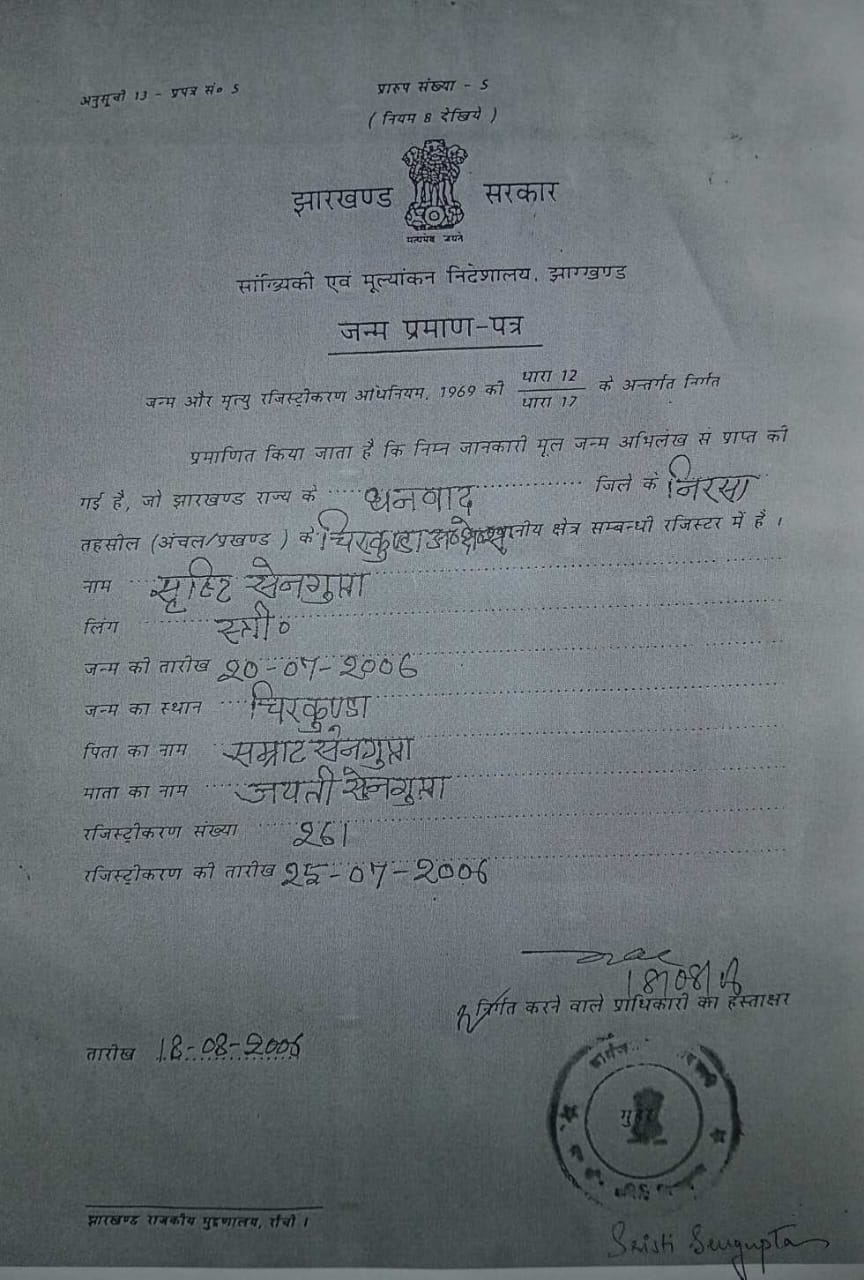 अनुसूची 13 - प्रपत्र सं० 5
प्रारुप संख्या - 5
( नियम 8 देखिये )
झारखण्ड सरकार
सत्यमेव जयते
सांख्यिकी एवं मूल्यांकन निदेशालय, झारखण्ड
जन्म प्रमाण-पत्र
जन्म और मृत्यु रजिस्ट्रीकरण अधिनियम, 1969 की धारा 12 / धारा 17 के अन्तर्गत निर्गत
प्रमाणित किया जाता है कि निम्न जानकारी मूल जन्म अभिलेख से प्राप्त की
गई है, जो झारखण्ड राज्य के धनबाद जिले के निरसा
तहसील (अंचल/प्रखण्ड ) के चिरकुण्डा स्थानीय क्षेत्र सम्बन्धी रजिस्टर में है ।
नाम सृष्टि सेनगुप्ता
लिंग स्त्री०
जन्म की तारीख 20-07-2006
जन्म का स्थान चिरकुण्डा
पिता का नाम सम्राट सेनगुप्ता
माता का नाम जयती सेनगुप्ता
रजिस्ट्रीकरण संख्या 261
रजिस्ट्रीकरण की तारीख 25-07-2006
निर्गत करने वाले प्राधिकारी का हस्ताक्षर
तारीख 18-08-2006
झारखण्ड राजकीय मुद्रणालय, राँची ।
Sristi Sengupta